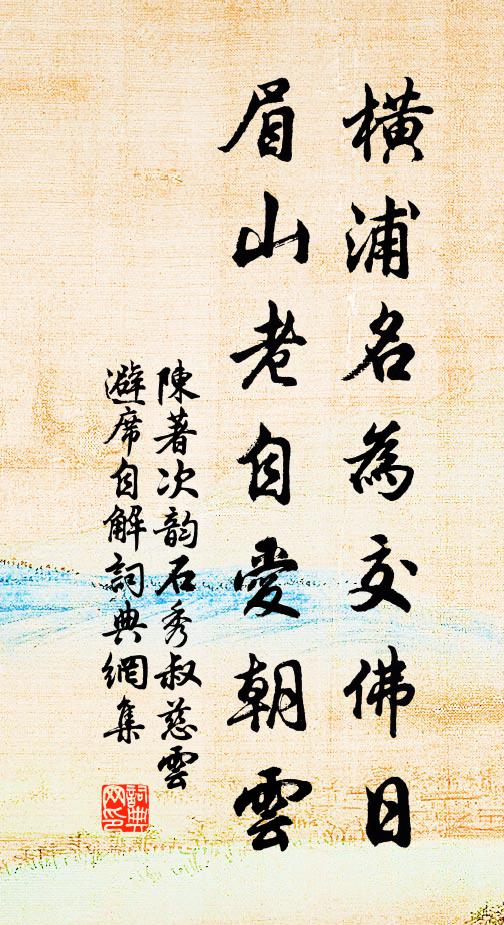 橫浦名為交佛日
眉山老自愛朝雲
陳著次韵石秀叔慈雲
避席自解詞典網集
詞典
网印